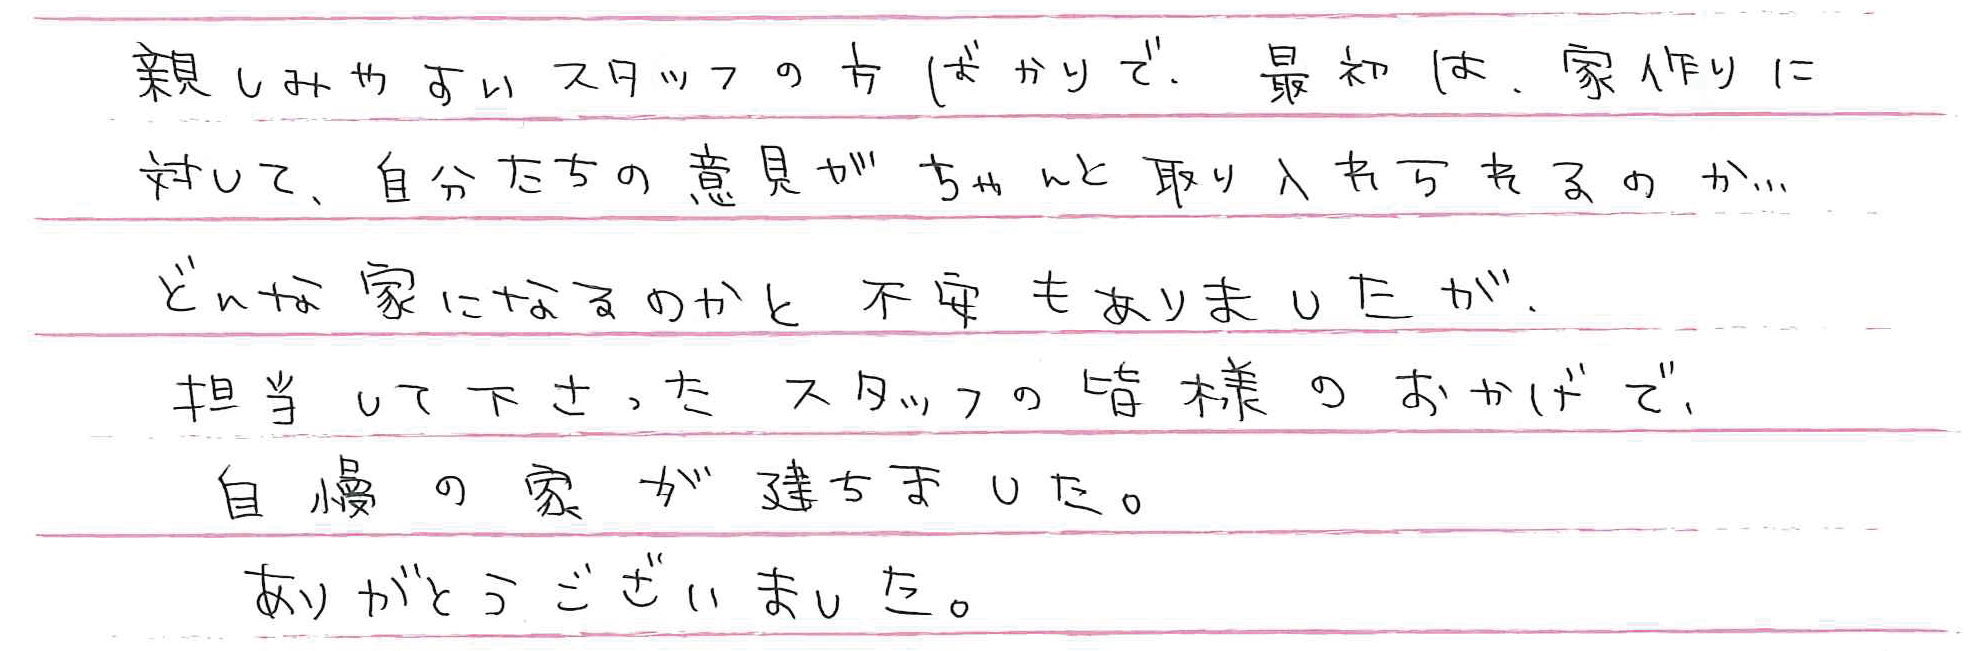 親しみやすいスタッフの方ばかりで、最初は、家作りに
対して、自分たちの意見がちゃんと取り入れられるのか…
どんな家になるのかと不安もありましたが、
担当して下さったスタッフの皆様のおかげで、
自慢の家が建ちました。
ありがとうございました。